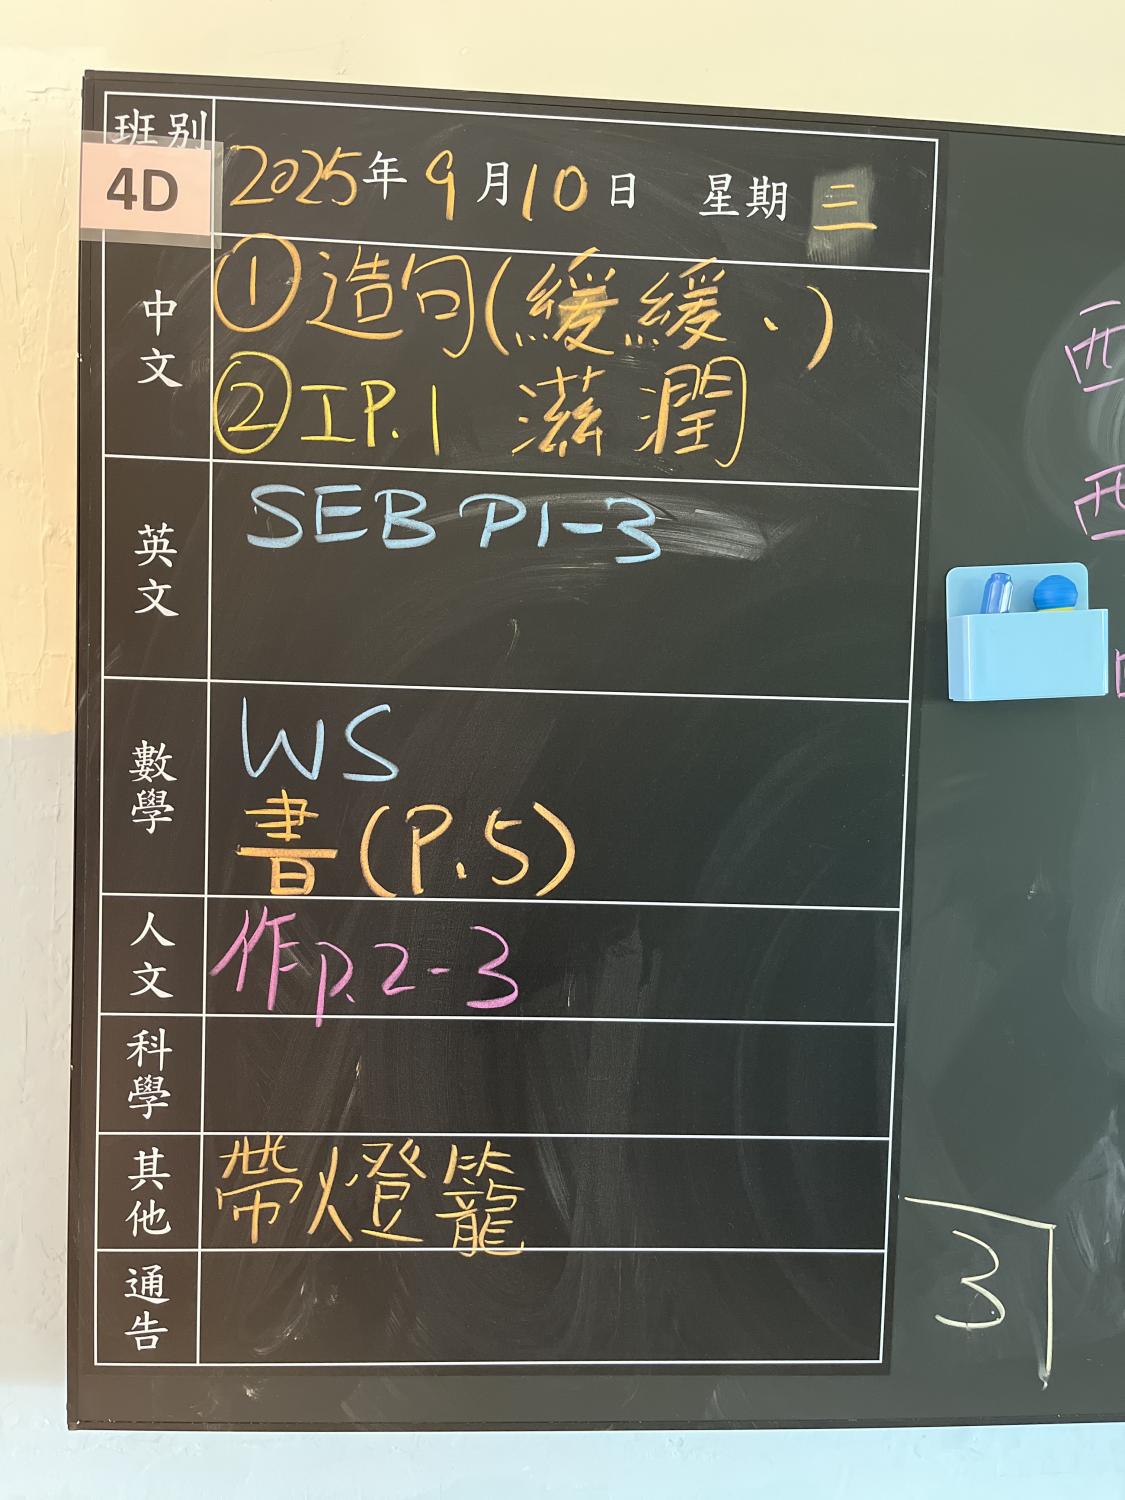 班別
4D
2025年9月10日 星期三
中文
①造句(緩緩、)
②IP.1 滋潤
英文
SEB P1-3
數學
WS
書(P.5)
人文
作P.2-3
科學
其他
帶燈籠
通告
西
西
3